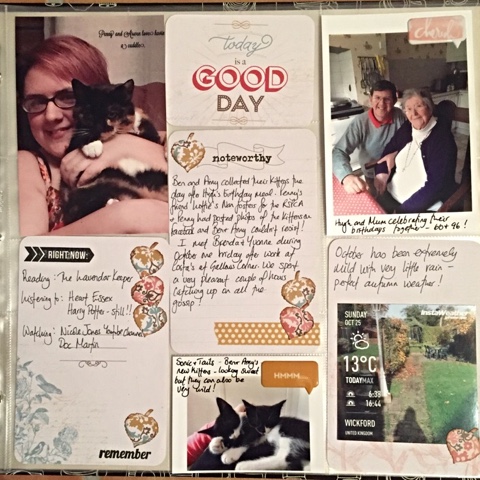 Penny and Aurora love havin
cuddles
today
is a
GOOD
DAY
cheers
Hugh and Mum celebrating their
birthdays together - 60 & 96!
noteworthy
Ben and Amy collected their kittens the
day after Hugh's birthday meal. Penny's
friend Lottie's Nan fosters for the RSPCA
Penny had posted photos of the kittens on
facebook and Ben & Amy couldn't resist!
I met Brenda & Yvonne during
October one friday after work at
Costa's at Gallows Corner. We spent
a very pleasant couple of hours
catching up on all the
gossip!
RIGHT NOW:
Reading: The Lavender Keeper
Listening to: Heart Essex
Harry Potter - still!!
Watching: Nicole Jones YouTube channel
Doc Martin
remember
Sonic & Tails - Ben & Amy's
new kittens - looking sweet
but they can also be
very wild!
HMMM...
October has been extremely
mild with very little rain -
perfect autumn weather!
InstaWeather
SUNDAY
OCT 25
13°C
TODAY MAX
6:38
16:44
WICKFORD
UNITED KINGDOM